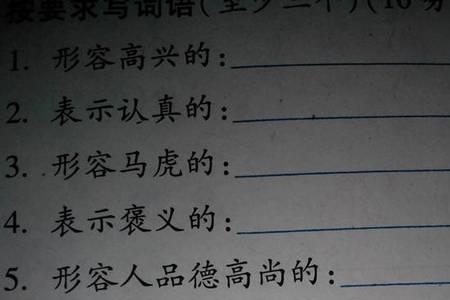 按要求写词语(至少三个)(16分
1. 形容高兴的:
2. 表示认真的:
3. 形容马虎的:
4. 表示褒义的:
5. 形容人品德高尚的: